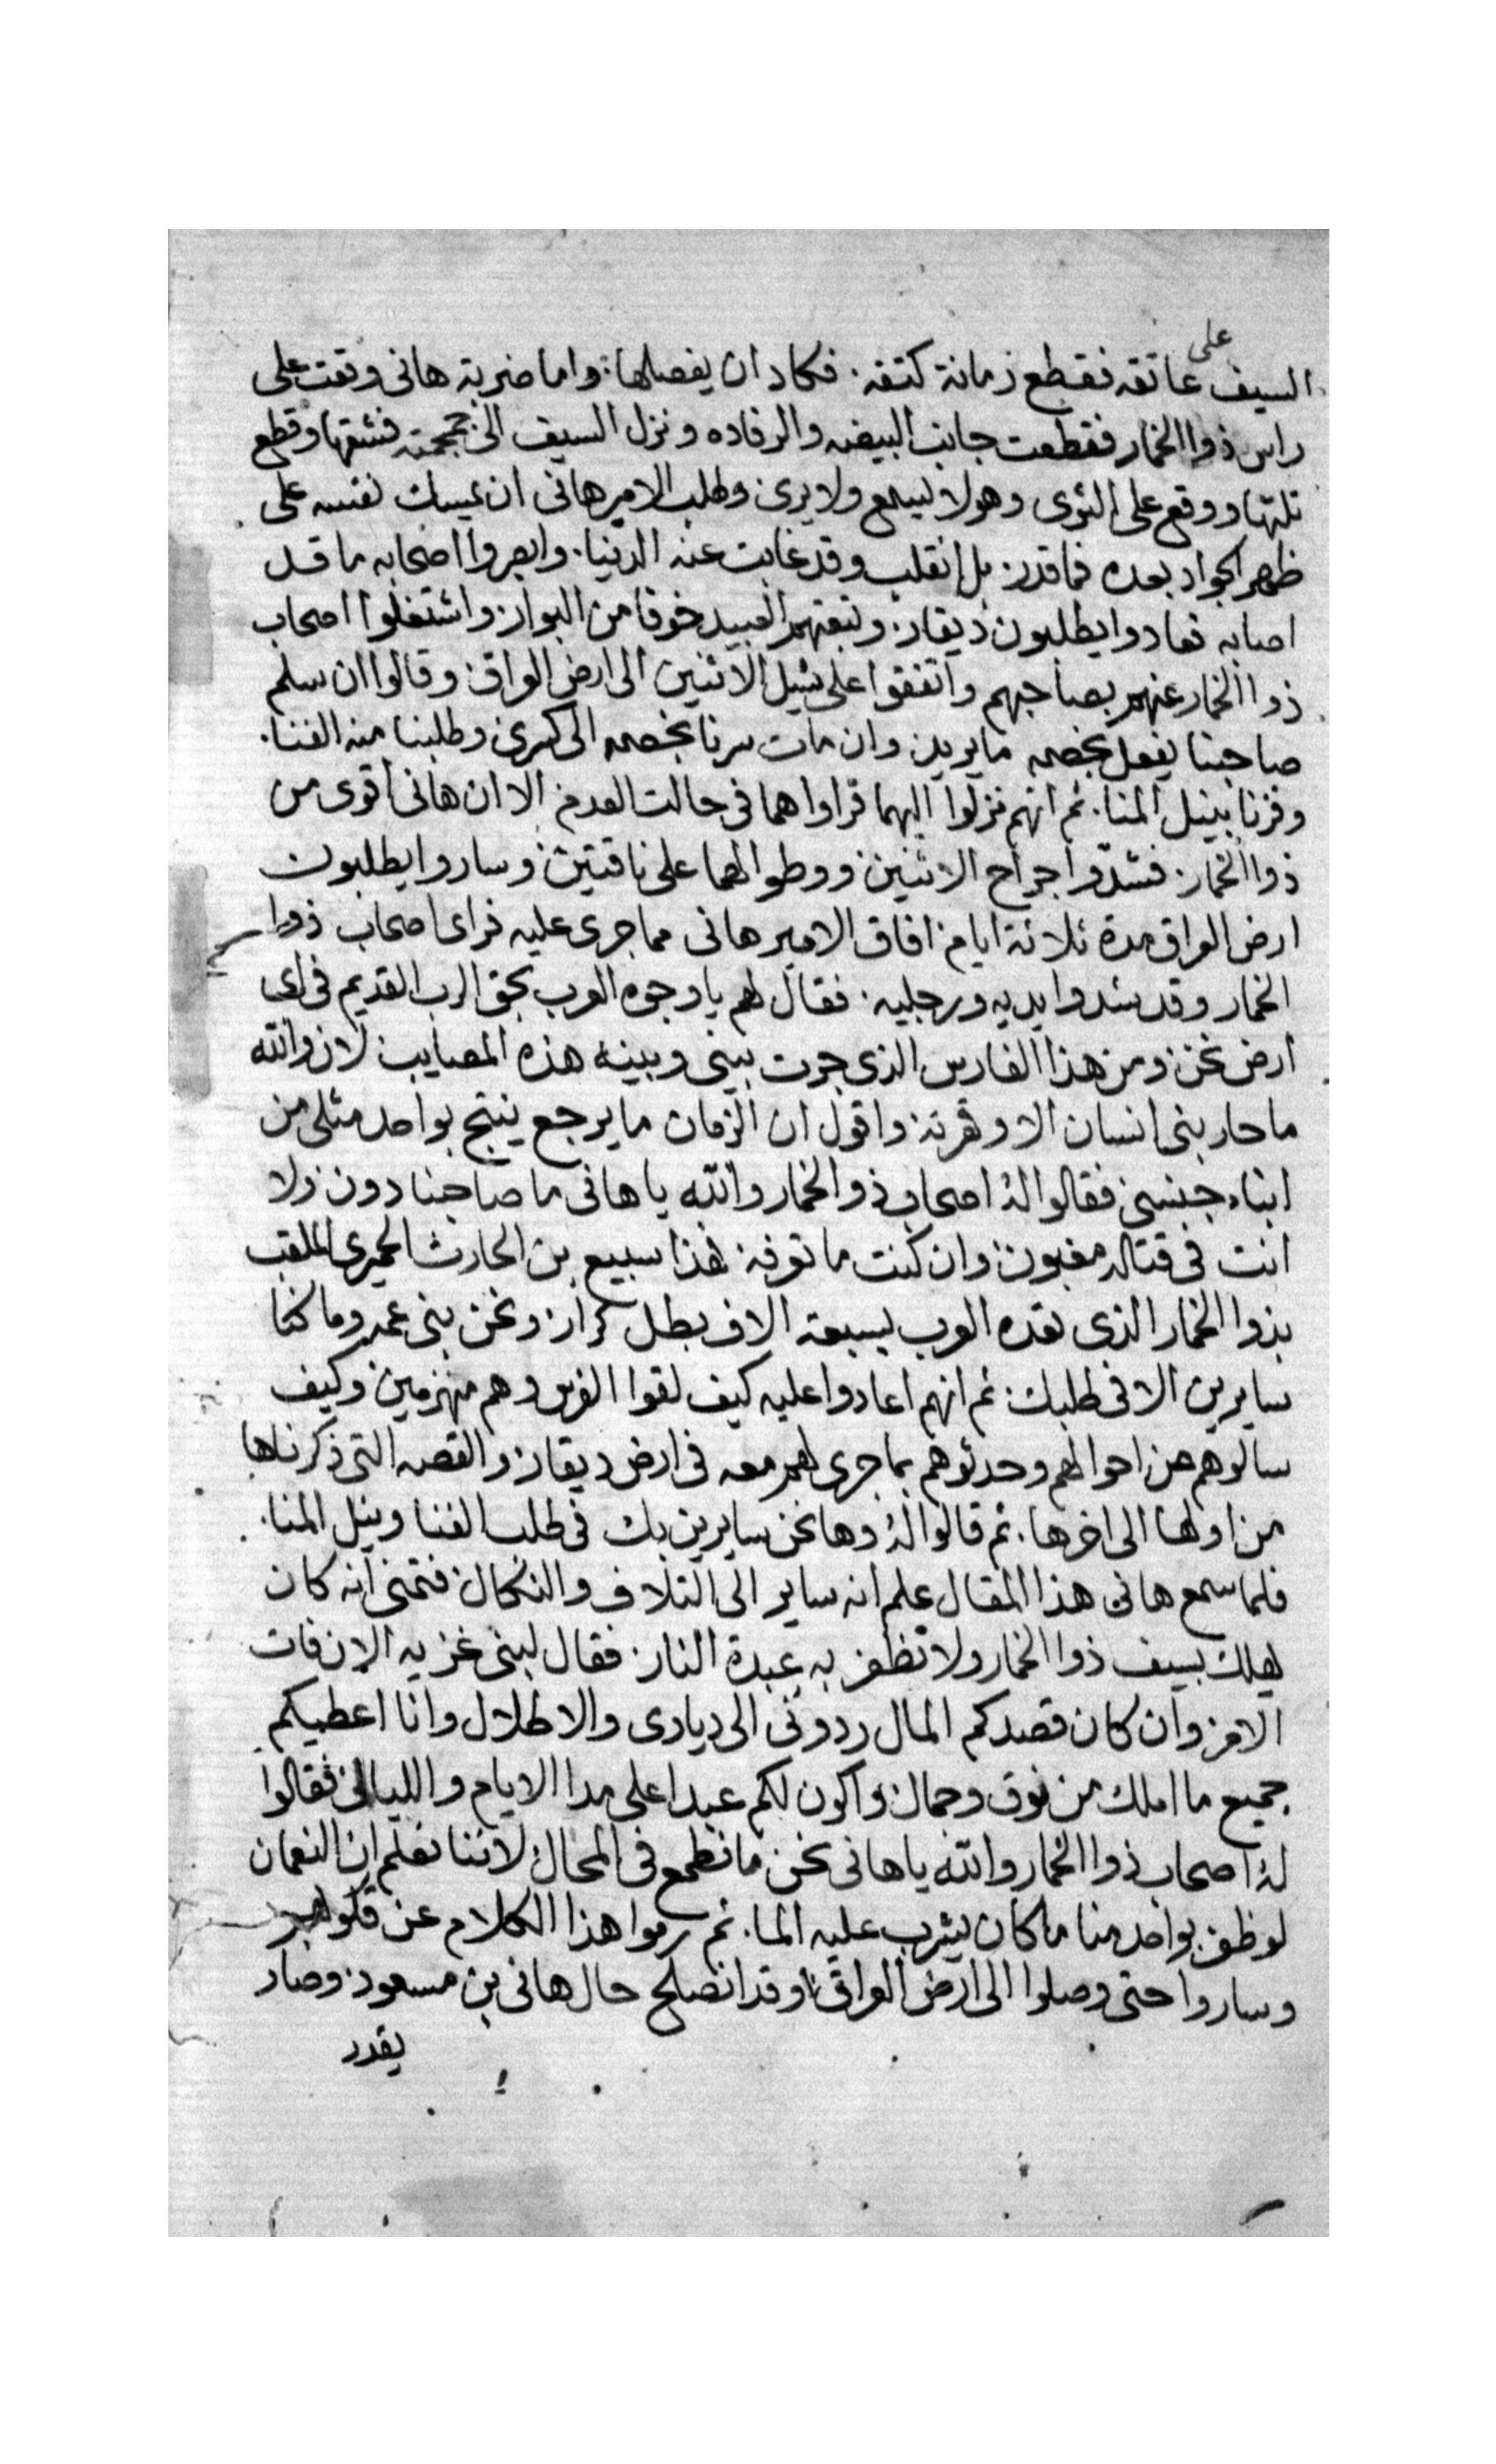 على
السيف عاتقه فقطع زمانة كتفه. فكاد ان يفصلها. واما ضربة هانى وقعت على
راس ذوا الخمار فقطعت جانب البيضه والرفاده ونزل السيف الى جمجمته فشقها وقطع
تلتها ووقع على الثرى وهو لا يسمع ولا يرى وطلب الامير هانى ان يمسك نفسه على
ظهر الجواد بعده فما قدر. بل انقلب وقد غابت عنه الدنيا. وابصروا اصحابه ما قد
اصابه فعادوا يطلبون ذيقار. وتبعتهم العبيد خوفا من البوار. واشتغلوا اصحاب
ذوا الخمار عنهم بصاحبهم واتفقوا على شيل الاثنين الى ارض العراق. وقالوا ان سلم
صاحبنا يفعل بخصمه ما يريد. وان مات سرنا بخصمه الى كسرى وطلبنا منه الغنا.
وفزنا بنيل المنا. ثم انهم نزلوا اليهما فراواهما فى حالت العدم. الا ان هانى اقوى من
ذوا الخمار. فشدّوا جراح الاثنين ووطوا لهما على ناقتين. وساروا يطلبون
ارض العراق مدة ثلاثة ايام. افاق الامير هانى مما جرى عليه فراى اصحاب ذوا
الخمار وقد شدوا يديه ورجليه. فقال لهم يا وجوه العرب بحق الرب القديم فى اى
ارض نحن. ومن هذا الفارس الذى جرت بينى وبينه هذه المصايب. لان والله
ما حاربنى انسان الا وقهرته. واقول ان الزمان ما يرجع ينتج بواحد مثلى من
ابناء جنسى. فقالوا لهُ اصحاب ذوا الخمار والله يا هانى ما صاحبنا دون. ولا
انت فى قتاله مغبون. وان كنت ما تعرفه. فهذا سبيع بن الحارث الحميرى الملقب
بذوا الخمار الذى تعده العرب بسبعة الاف بطل كرار. ونحن بنى عمه وما كنا
سايرين الا فى طلبك. ثم انهم اعادوا عليه كيف لقوا الفرس وهم منهزمين. وكيف
سالوهم عن احوالهم وحدثوهم بما جرى لهم معه فى ارض ديقار. والقصه التى ذكرناها
من اولها الى اخرها. ثم قالوا لهُ وها نحن سايرين بك فى طلب الغنا ونيل المنا.
فلما سمع هانى هذا المقال علم انه ساير الى التلاف والنكال. فتمنى انه كان
يهلك بسيف ذوا الخمار ولا تظفر به عبدة النار. فقال لبنى غزيه الان فات
الامر. وان كان قصدكم المال ردونى الى ديارى والاطلال وانا اعطيكم
جميع ما املك من نوق وجمال. واكون لكم عبدا على مدا الايام والليالى. فقالوا
لهُ اصحاب ذوا الخمار والله يا هانى نحن ما نطمع فى المحال. لاننا نعلم ان النعمان
لو ظفر بواحد منا ما كان يشرب عليه الما. ثم رموا هذا الكلام عن قلوبهم
وساروا حتى وصلوا الى ارض العراق. وقد انصلح حال هانى بن مسعود. وصار
يقدر